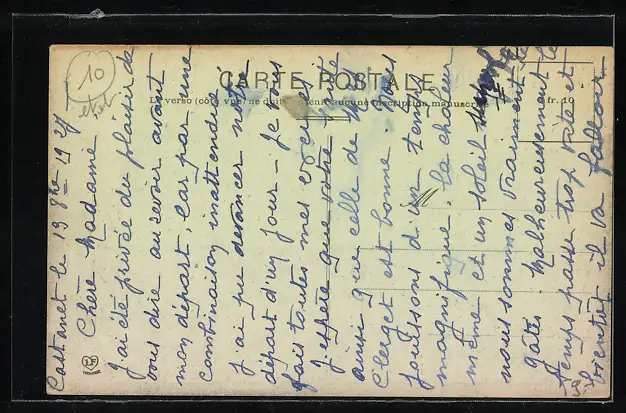 CARTE POSTALE
Le verso (côté vue) ne doit contenir aucune inscription manuscrite
fr. 10
10
Castanet le 19 8bre 1927
Chère Madame
J'ai été privée du plaisir de
vous dire au revoir avant
mon départ, car par une
combinaison inattendue
j'ai pu devancer
départ d'un jour - je vous
fais toutes mes excuses
J'espère que votre
ainsi que celle de
Clerget est bonne.
jouissons d'un temps
magnifique, la chaleur
même et un soleil
nous sommes vraiment
gâtés Malheureusement le
temps passe trop vite et
bientôt il va falloir